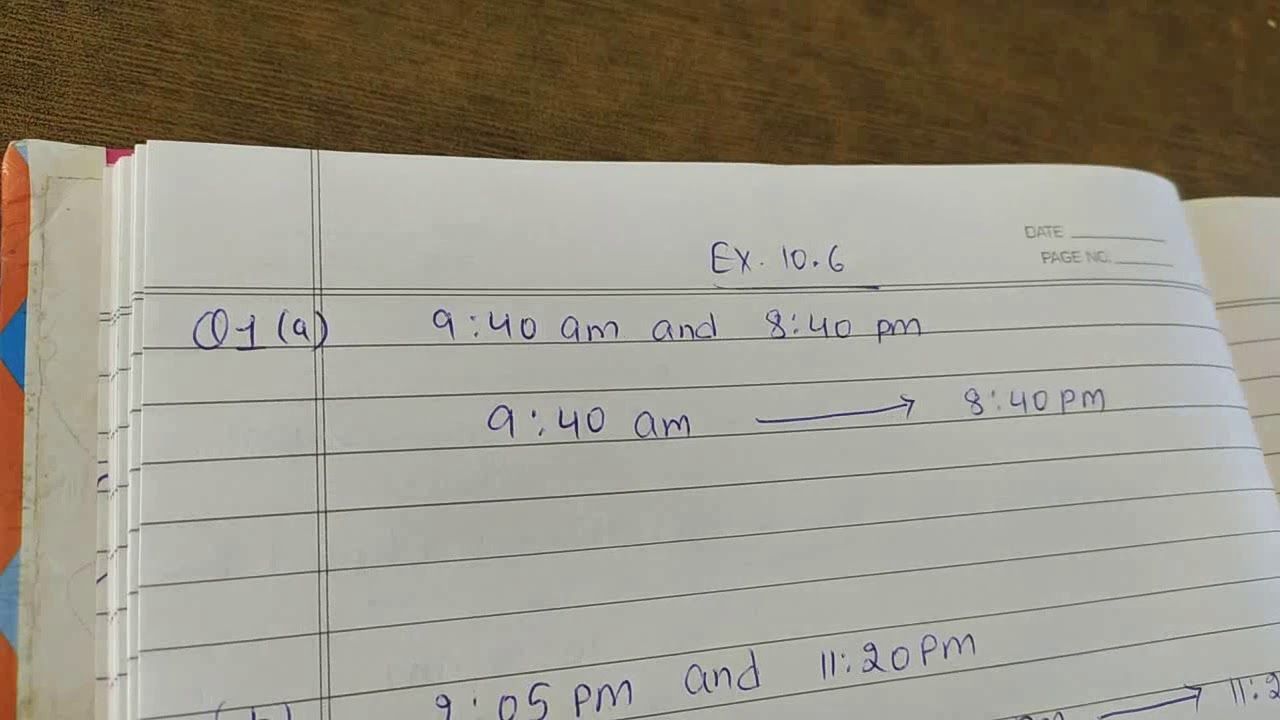 DATE
PAGE NO.
Ex. 10.6
Q1 (a) 9:40 am and 8:40 pm
9:40 am → 8:40 pm
9:05 pm and 11:20 pm
→